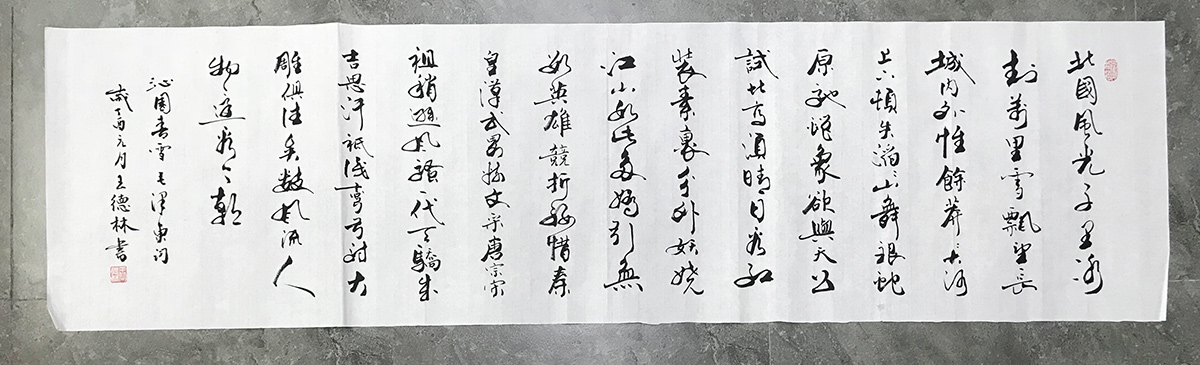 北國風光千里冰
封萬里雪飄望長
城内外惟餘莽々大河
上下頓失滔々山舞銀蛇
原馳蠟象欲與天公
試比高須晴日看紅
裝素裹分外妖嬈
江山如此多嬌引無
數英雄競折腰惜秦
皇漢武略輸文采唐宗宋
祖稍遜風騷一代天驕成
吉思汗祇識彎弓射大
雕俱往矣數風流人
物還看今朝
沁園春雪毛澤東詞
歲丁酉元月王德林書